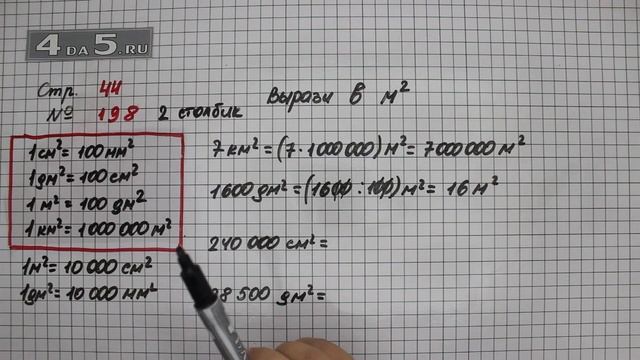 4DA5.RU
Стр. 44
№ 198 2 столбик
Вырази в м²
1см² = 100мм²
1дм² = 100см²
1м² = 100дм²
1км² = 1000000м²
1м² = 10000см²
1дм² = 10000мм²
7км² = (7·1000000)м² = 7000000м²
1600дм² = (1600:100)м² = 16м²
240000см² =
8500дм² =